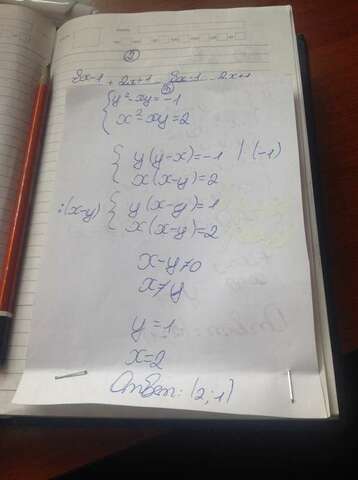 ②
8x-1 + 2x+1 - 8x-1 - 2x+1
③
{ y²-xy=-1
{ x²-xy=2
{ y(y-x)=-1 | (-1)
{ x(x-y)=2
:(x-y) { y(x-y)=1
{ x(x-y)=2
x-y≠0
x≠y
y=1
x=2
Ответ: (2;1)